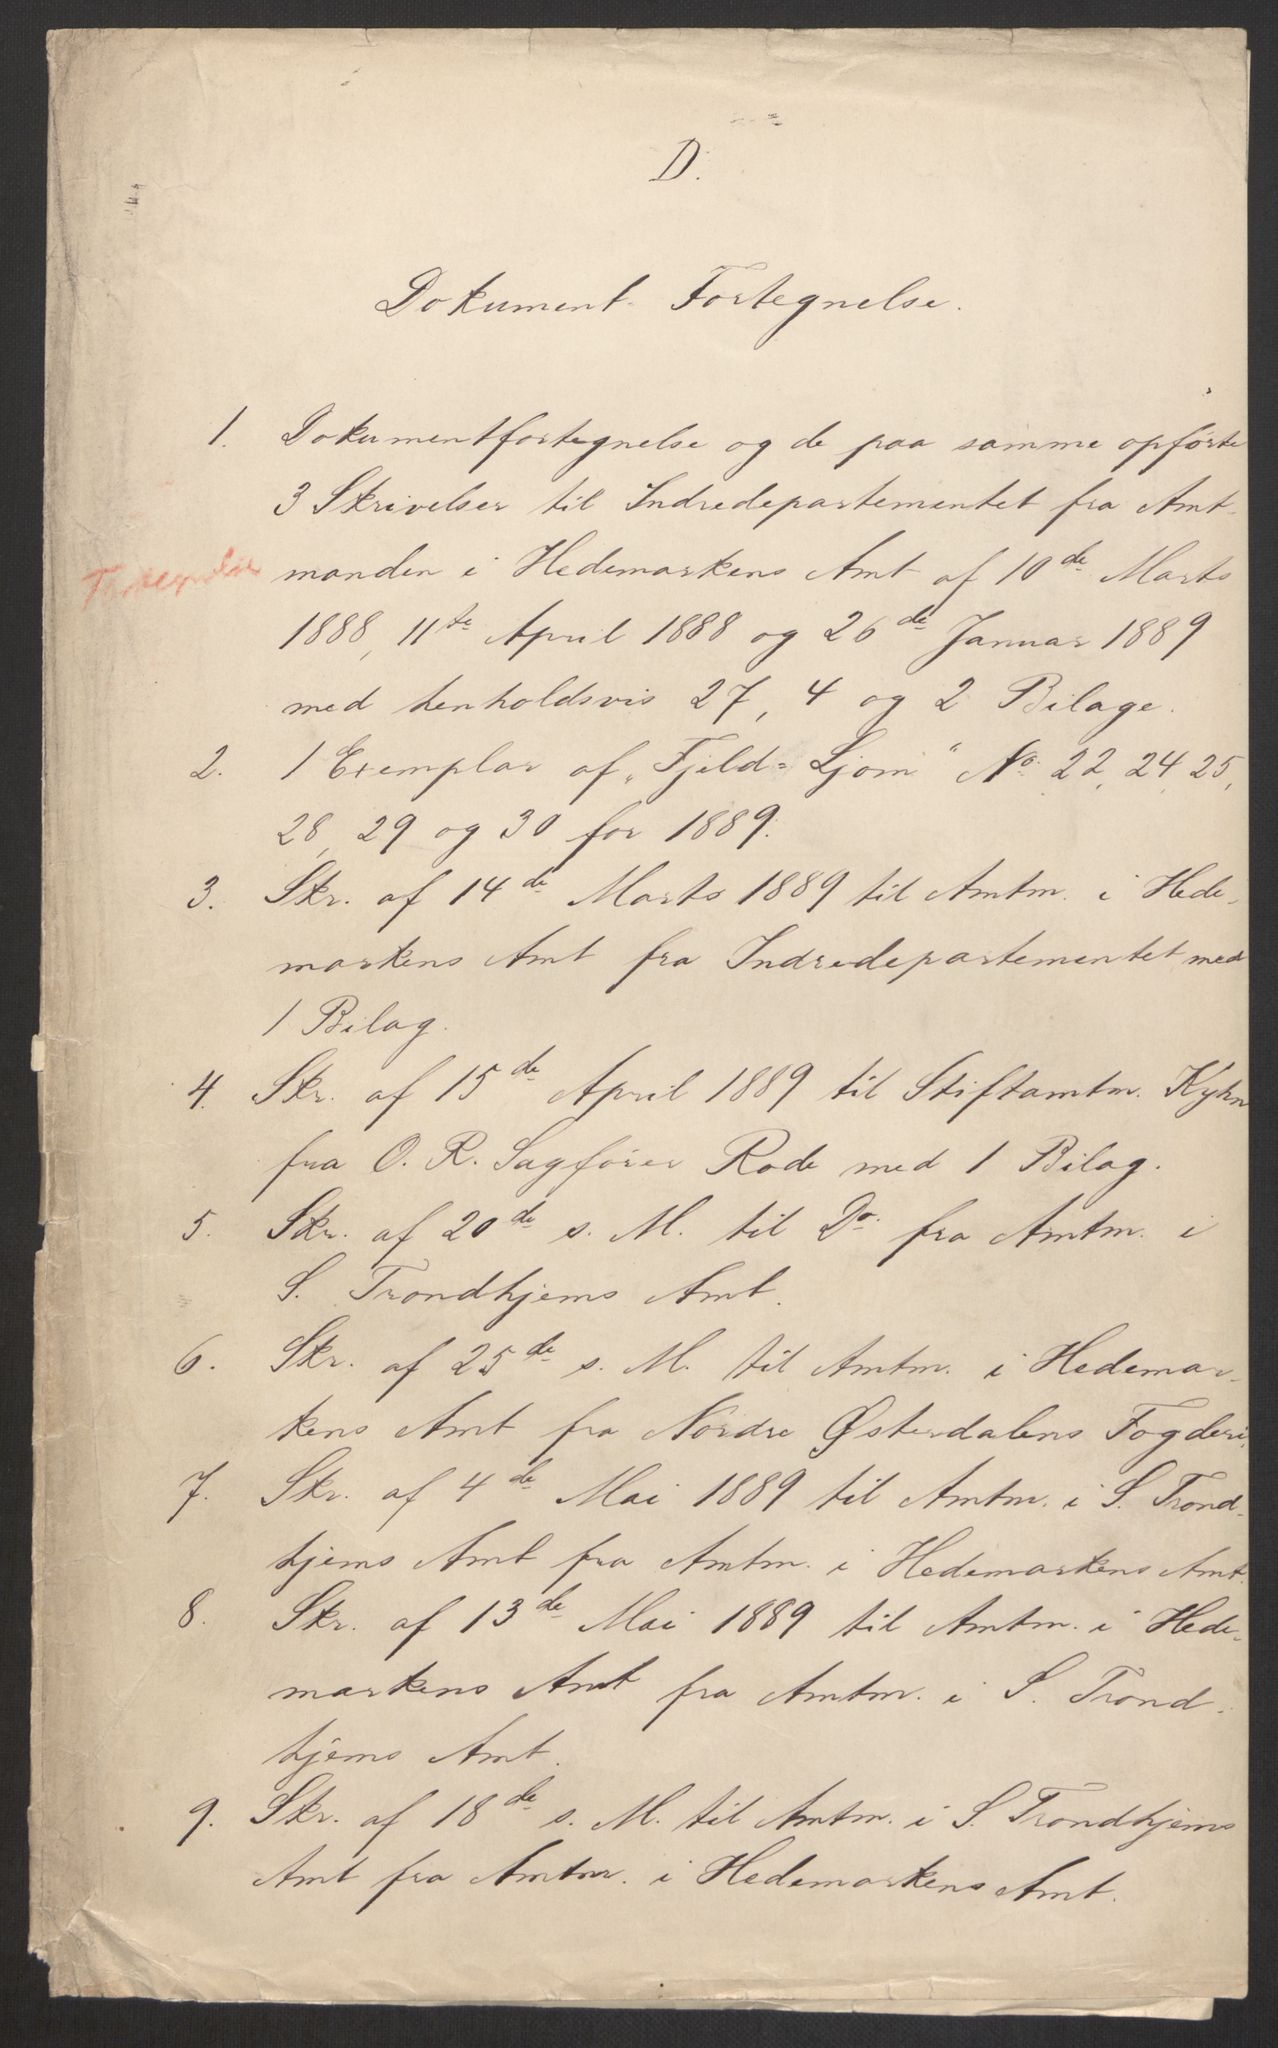 D.
Dokument-Fortegnelse.
1. Dokumentfortegnelse og de paa samme opførte
3 Skrivelser til Indredepartementet fra Amt-
Fortegnelse
manden i Hedemarkens Amt af 10de Marts
1888, 11te April 1888 og 26de Januar 1889
med henholdsvis 27, 4 og 2 Bilage.
2. 1 Exemplar af „Fjeld-Ljom“ No. 22, 24, 25,
28, 29 og 30 for 1889.
3. Skr. af 14de Marts 1889 til Amtm. i Hede-
markens Amt fra Indredepartementet med
1 Bilag.
4. Skr. af 15de April 1889 til Stiftamtm. Kyhn
fra O. R. Sagfører Rode med 1 Bilag.
5. Skr. af 20de s. M. til Do. fra Amtm. i
S. Trondhjems Amt.
6. Skr. af 25de s. M. til Amtm. i Hedemar-
kens Amt fra Nordre Østerdalens Fogderi.
7. Skr. af 4de Mai 1889 til Amtm. i S. Trond-
hjems Amt fra Amtm. i Hedemarkens Amt.
8. Skr. af 13de Mai 1889 til Amtm. i Hede-
markens Amt fra Amtm. i S. Trond-
hjems Amt.
9. Skr. af 18de s. M. til Amtm. i S. Trondhjems
Amt fra Amtm. i Hedemarkens Amt.